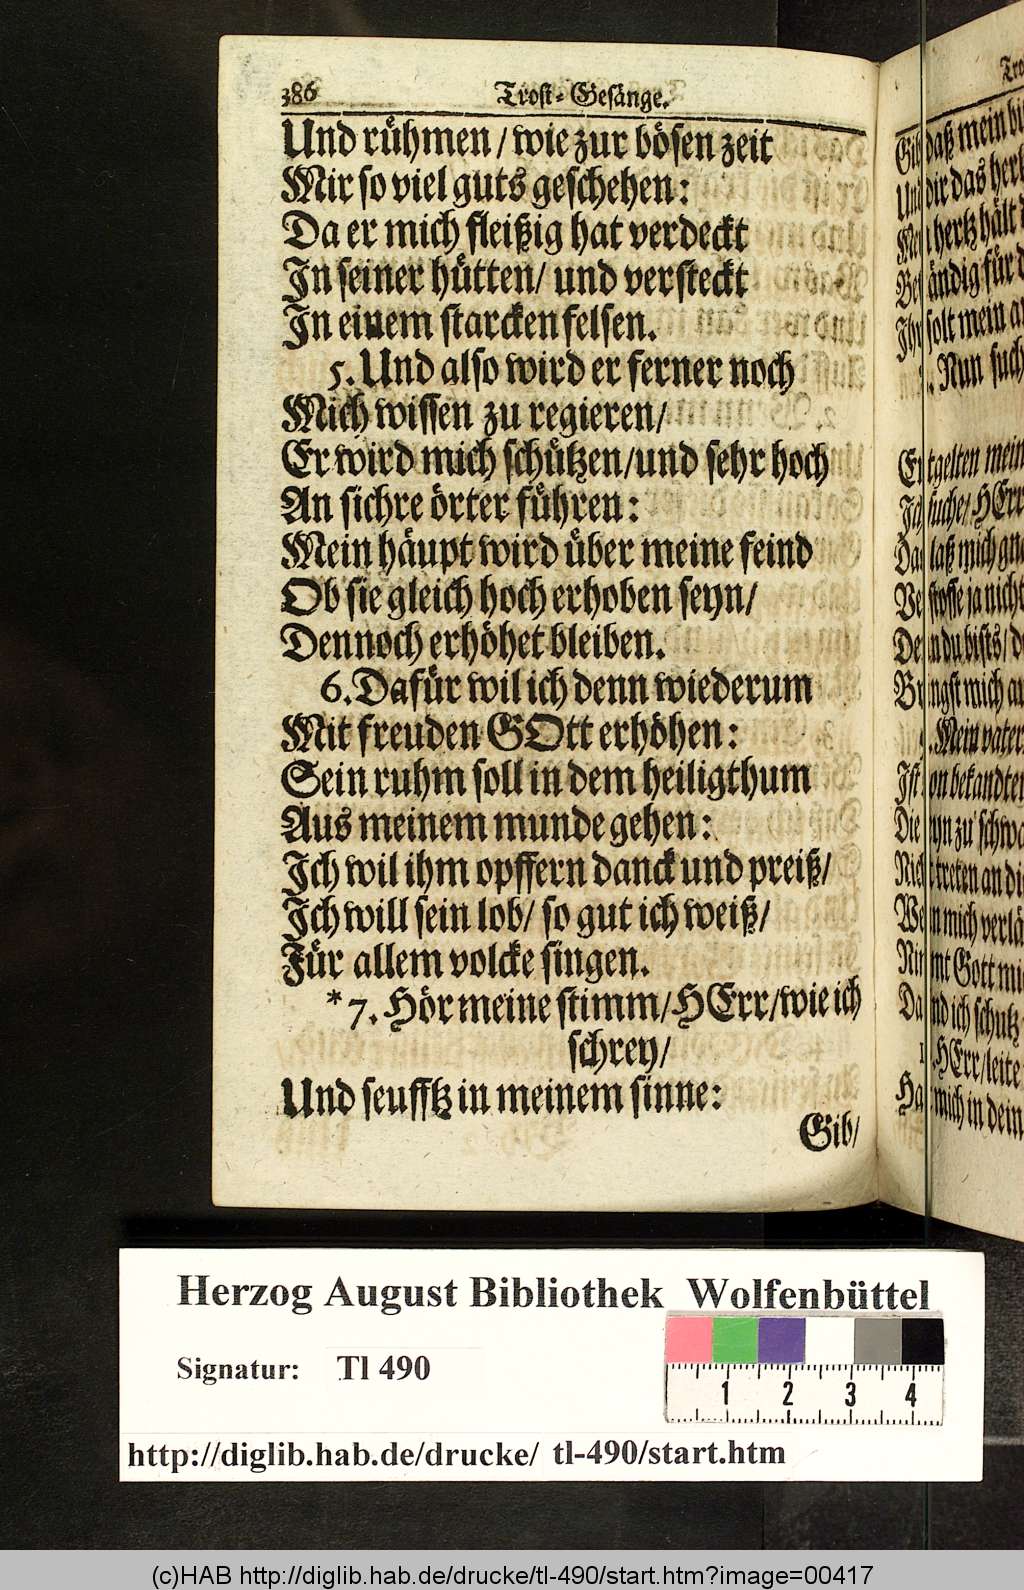 386 Trost-Gesänge.
Und rühmen / wie zur bösen zeit
Mir so viel guts geschehen:
Da er mich fleißig hat verdeckt
In seiner hütten / und versteckt
In einem starcken felsen.
5. Und also wird er ferner noch
Mich wissen zu regieren /
Er wird mich schützen / und sehr hoch
An sichre örter führen:
Mein häupt wird über meine feind
Ob sie gleich hoch erhoben seyn /
Dennoch erhöhet bleiben.
6. Dafür wil ich denn wiederum
Mit freuden GOtt erhöhen:
Sein ruhm soll in dem heiligthum
Aus meinem munde gehen:
Ich wil ihm opffern danck und preiß /
Ich will sein lob / so gut ich weiß /
Für allem volcke singen.
* 7. Hör meine stimm / HErr / wie ich
schrey /
Und seufftz in meinem sinne:
Gib /
daß mein
dir das
hertz hält
solt mein
Nun such
mein
suche / HErr
laß mich
ja nicht
du bists /
mich
Mein vater
zu
treten an
mich
Gott
ich schutz
HErr / leite
mich in dein
Herzog August Bibliothek Wolfenbüttel
Signatur: Tl 490
1 2 3 4
http://diglib.hab.de/drucke/ tl-490/start.htm
(c)HAB http://diglib.hab.de/drucke/tl-490/start.htm?image=00417